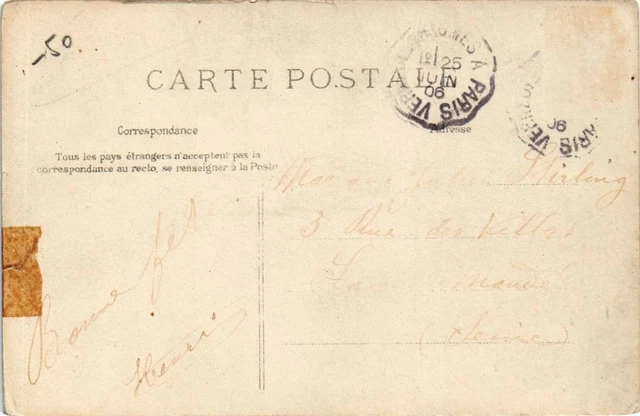 -50
CARTE POSTALE
1º 25
JUIN
06
À PARIS VER
Correspondance
Adresse
06
PARIS VER
Tous les pays étrangers n'acceptent pas la
correspondance au recto, se renseigner à la Poste
Stirling
3 Rue des Villas
(Seine)
Bonne fête
Henri